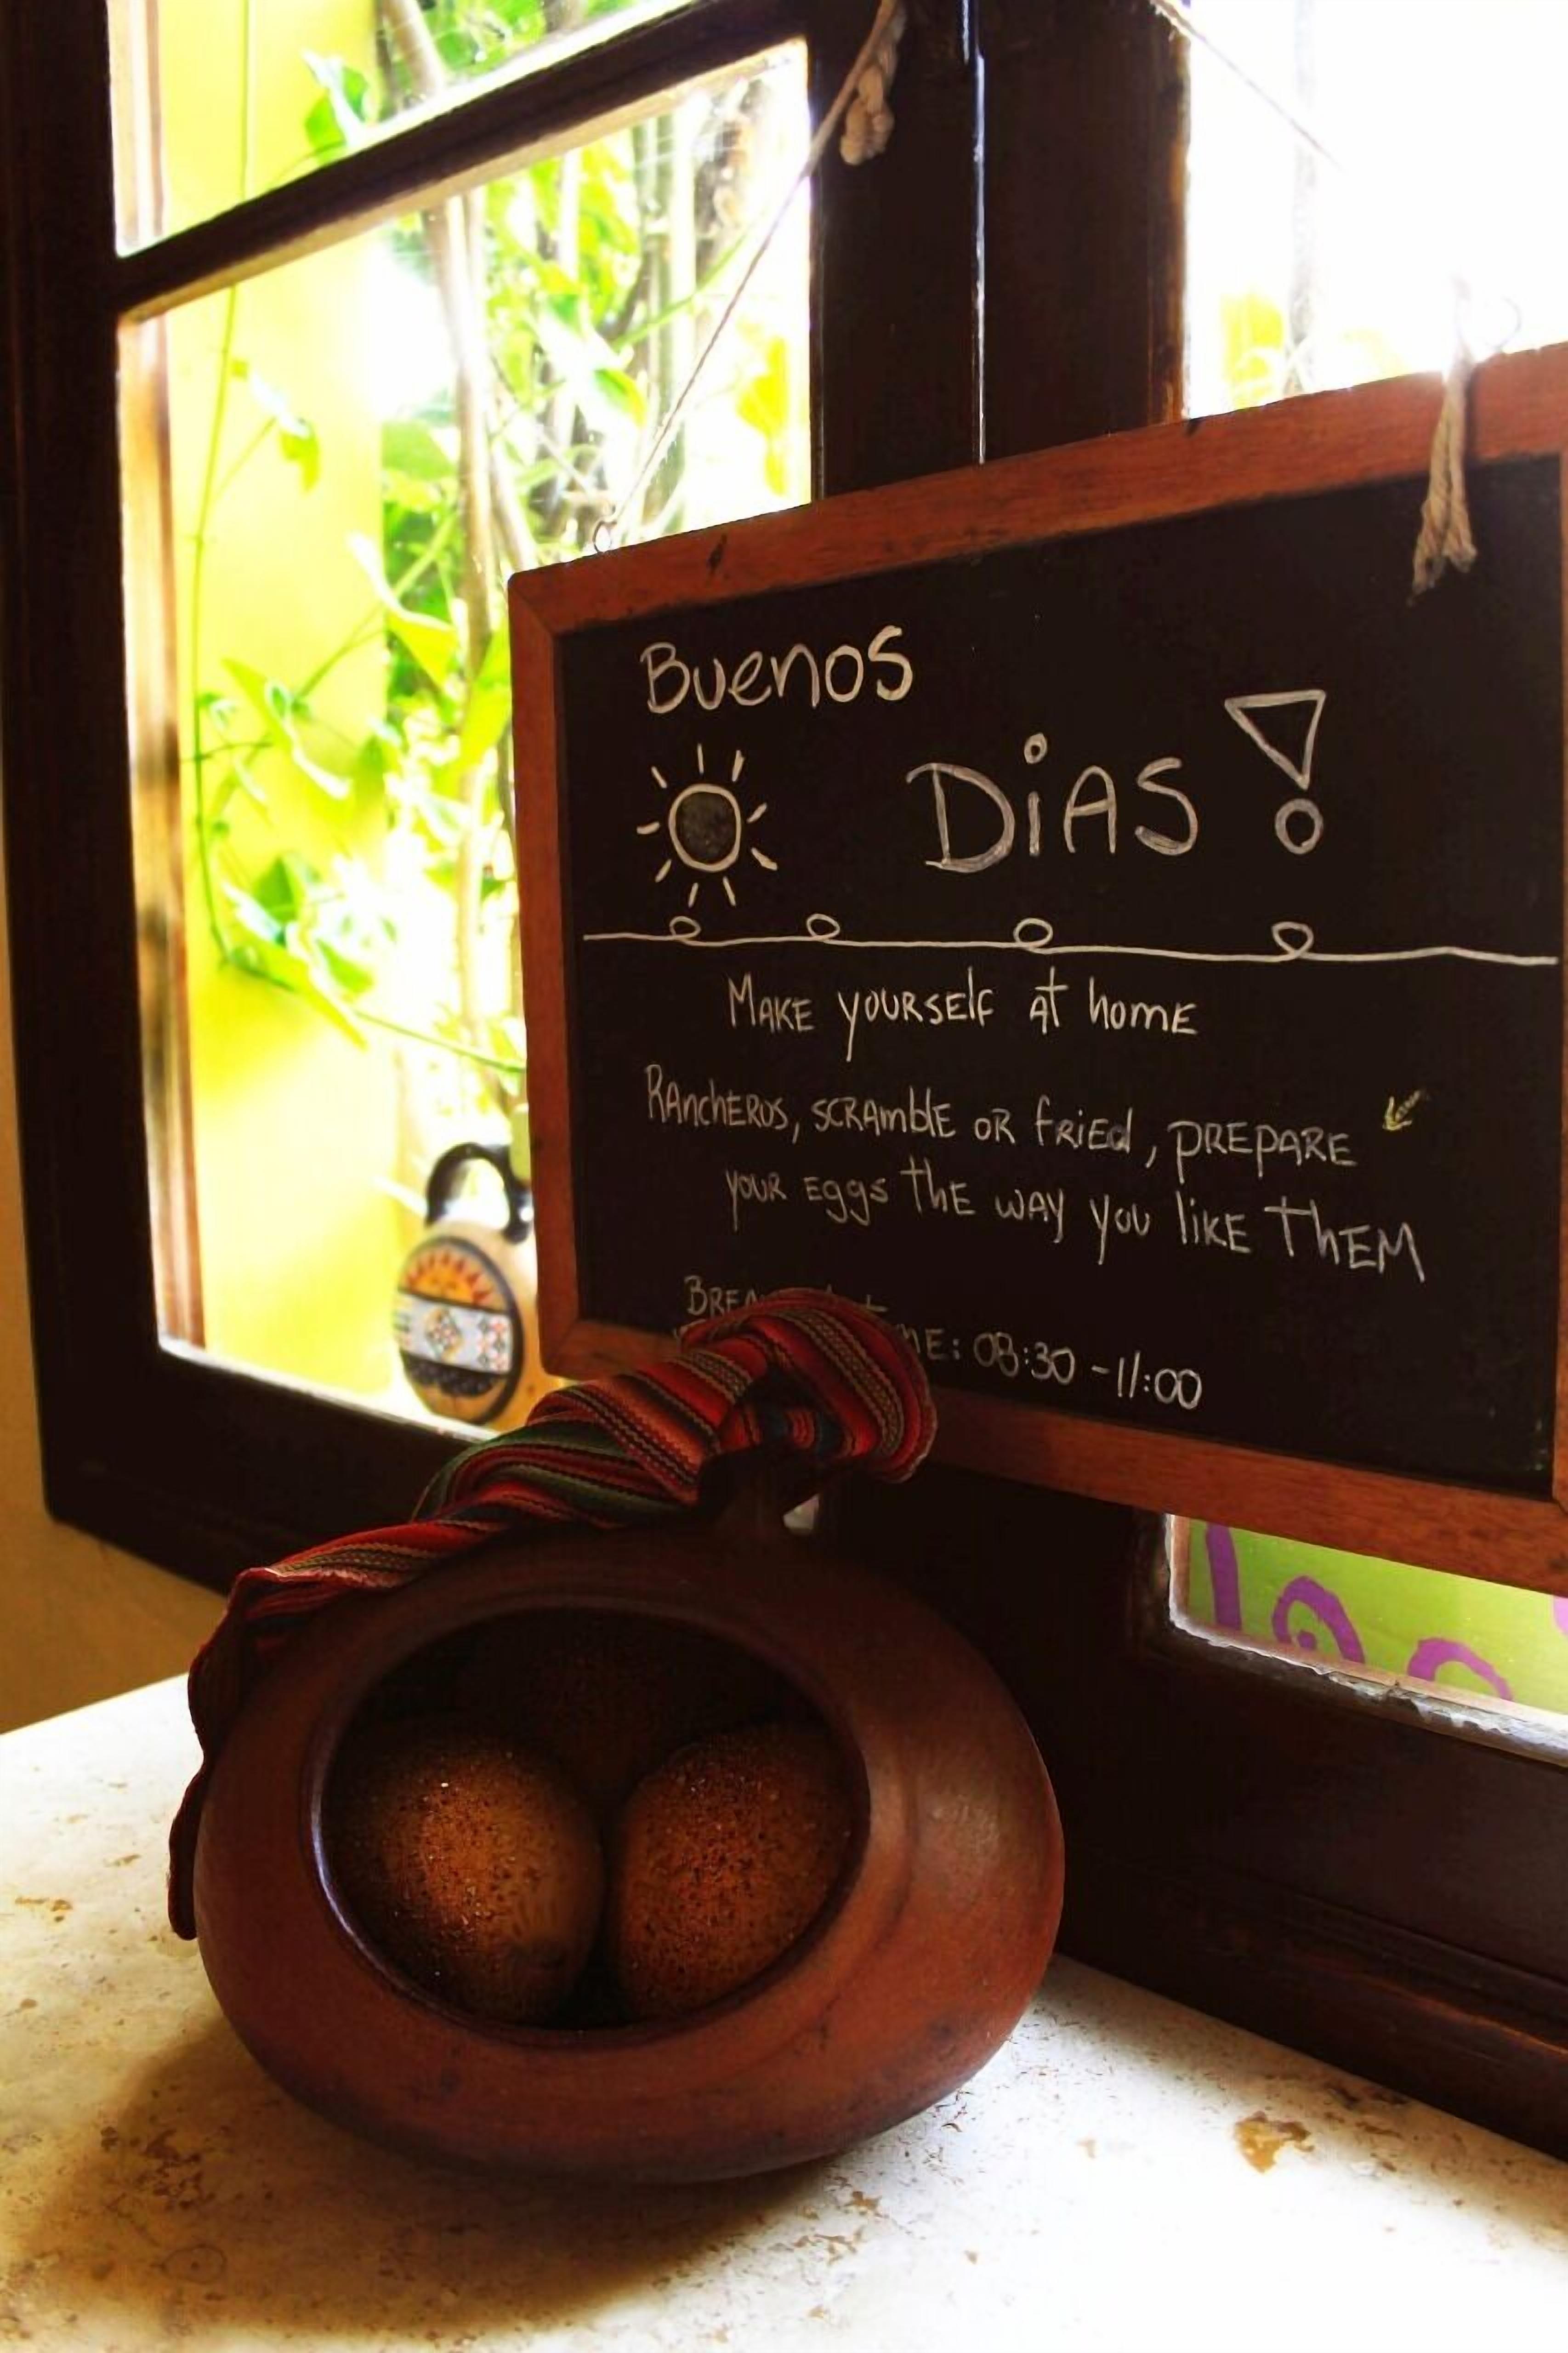 Buenos
DiAS !
MAKE yourself At home
RAncHEROS, SCRAmblE OR fRiEd, PREPARE
your Eggs ThE way you liKE ThEM
08:30 - 11:00